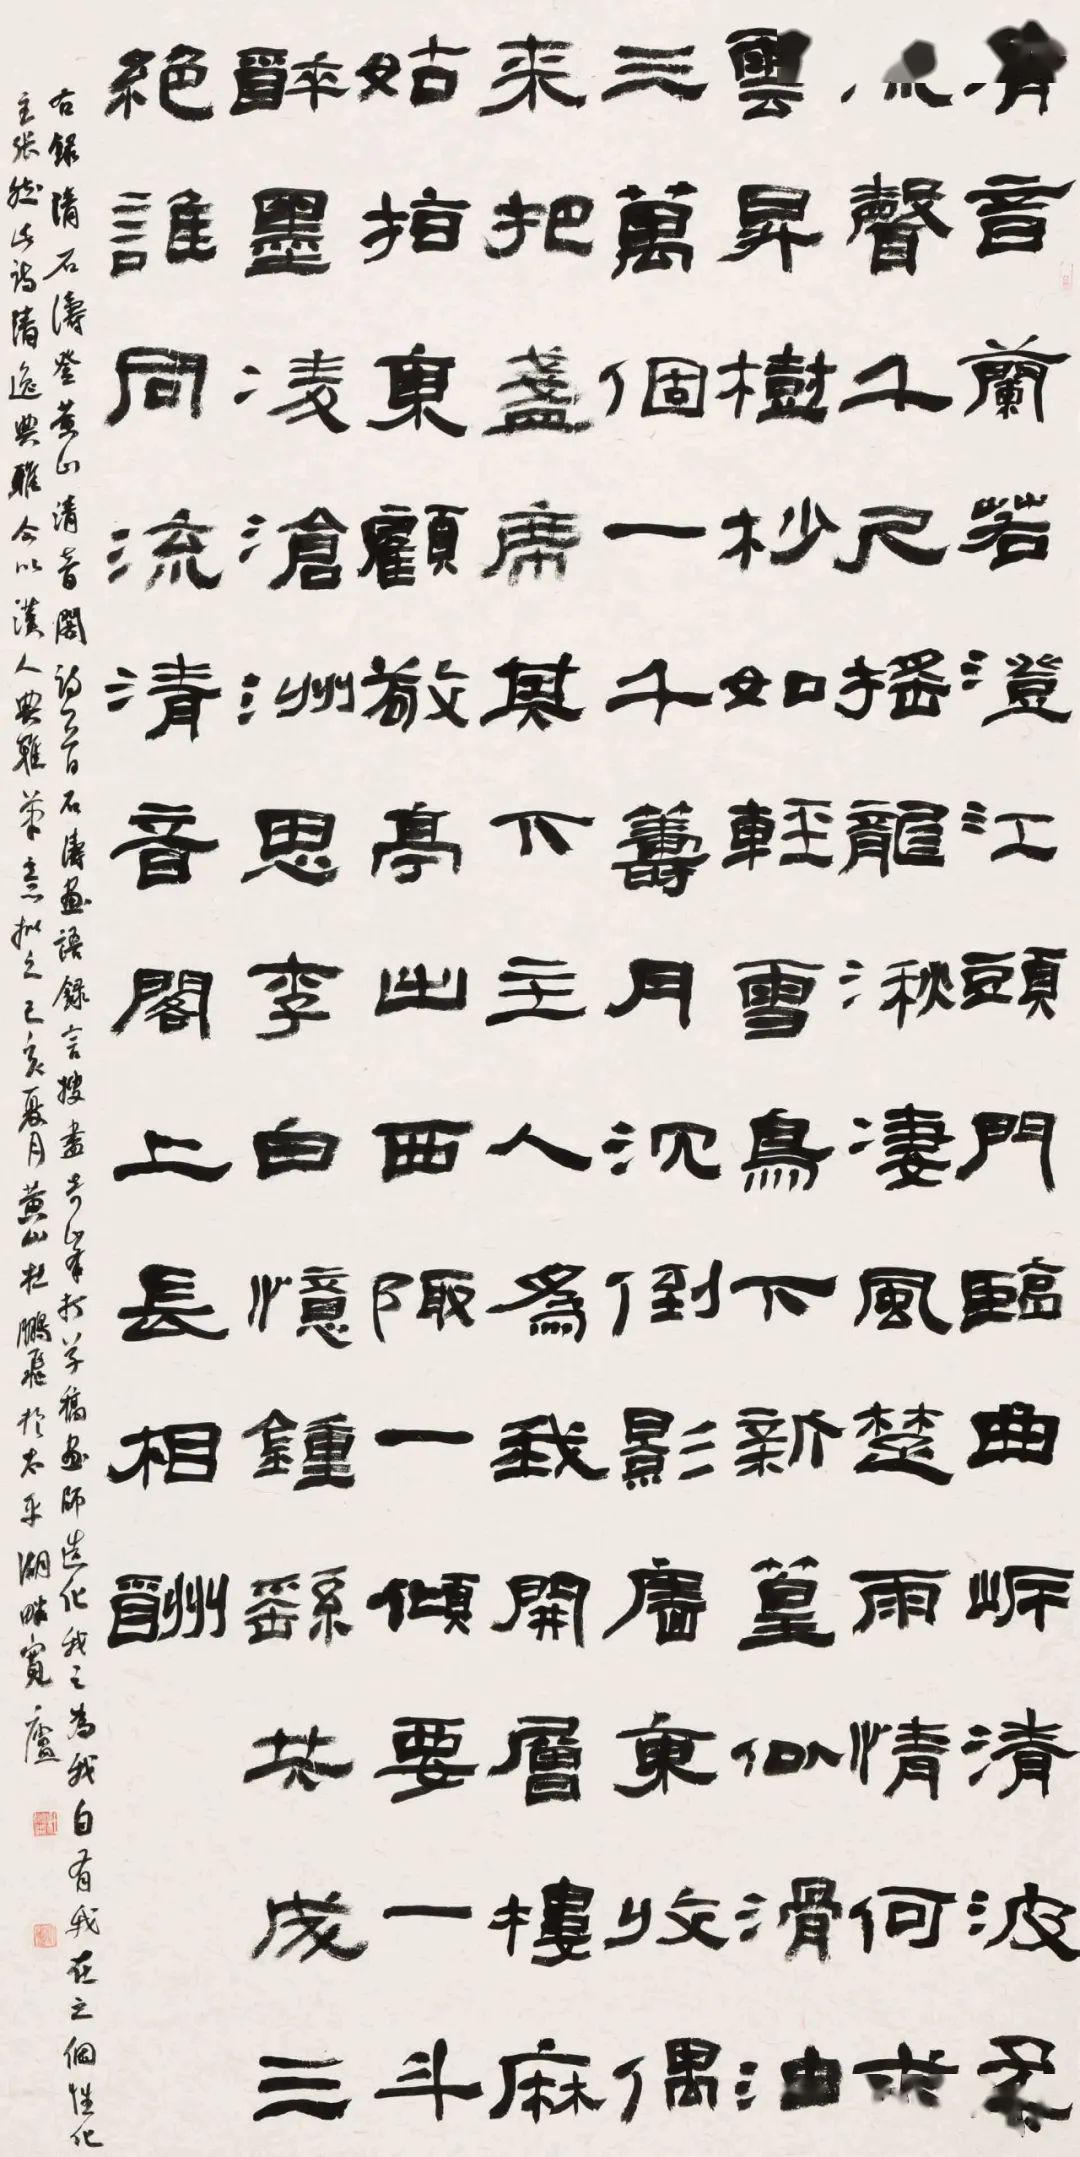 清音蘭若澄江頭門臨曲岸清波柔
流聲千尺搖龍湫淒風楚雨情何求
雲昇樹杪如輕雪鳥下新篁似滑油
三萬個一千籌月沉倒影廧東收偶
來把盞席其下主人為我開層樓麻
姑指東顧敬亭出西陬一傾要一斗
醉墨凌滄洲思李白憶鍾繇共成三
絕誰同流清音閣上長相酬
右錄清石濤登黃山清音閣詩一首石濤畫語錄言搜盡奇峰打草稿畫師造化我之為我自有我在之個性化
主張然此詩清逸典雅今以漢人典雅筆意拟之己亥夏月黃山杜鵬飛於太平湖畔寬廬